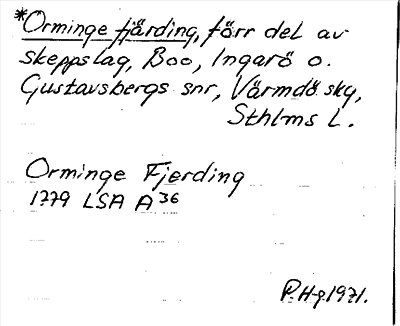 *Orminge fjärding, förr del av
skeppslag, Boo, Ingarö o.
Gustavsbergs snr, Värmdö skg,
Sthlms L.
Orminge Fjerding
1779 LSA A36
P.H-g.1971.